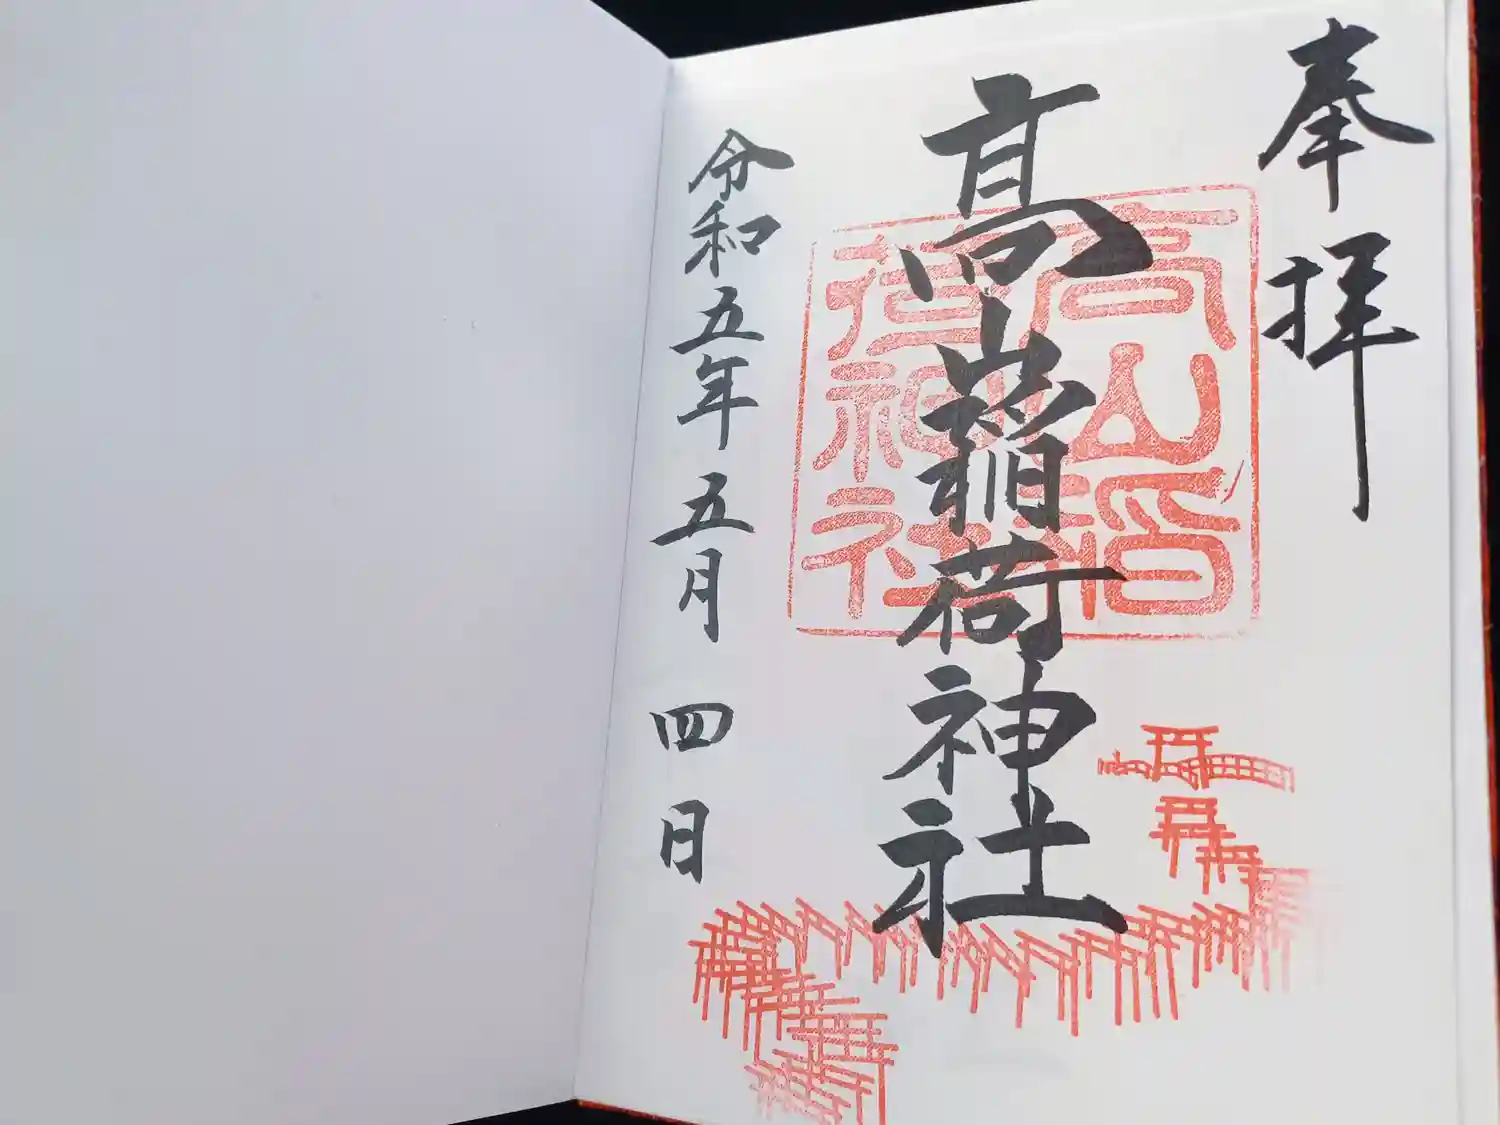 奉拝
髙山稲荷神社
令和五年五月四日
高山稻
荷神社